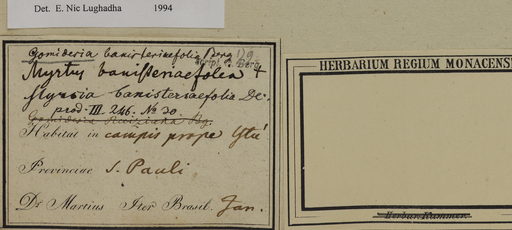 Det. E. Nic Lughadha 1994
Gomidesia banisteriaefolia Berg
scrips. O. Berg.
Myrtus banisteriaefolia +
Myrcia banisteriaefolia DC.
prod. III. 246. No 20.
Gomidesia Berg.
Habitat in campis prope Ytú
Provinciae S. Pauli
Dr Martius Iter Brasil. Jan.
HERBARIUM REGIUM MONACENS
Herbar. Kummer.